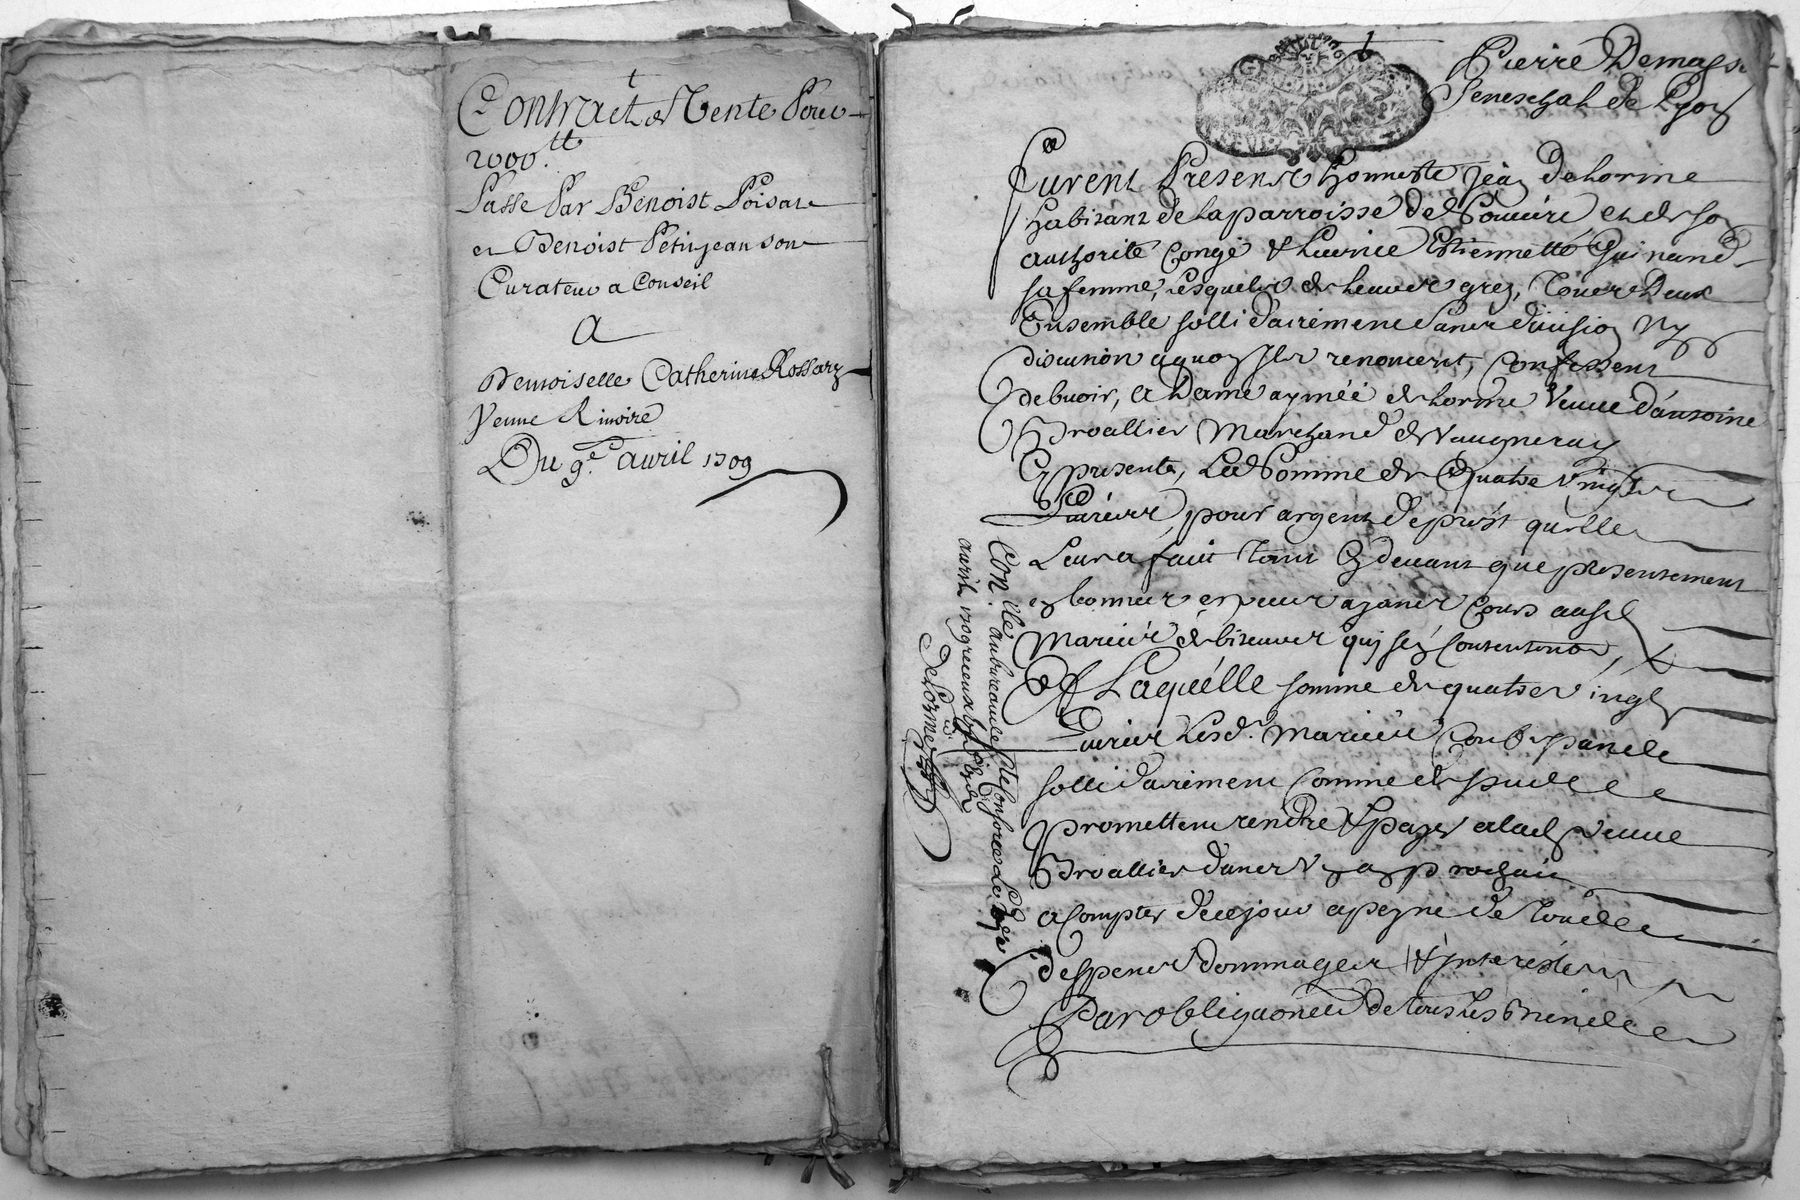 Contract de Vente Pour
2000.tt
Passé Par Benoist Poisat
et Benoist Petitjean son
Curateur a Conseil
A
Demoiselle Catherine Rossary
Veuve Rivoire
Du 9e. avril 1709
Pierre Demas
Seneschal de Lyon
Furent Presens honneste Jean Delorme
habitant de la parroisse de et de son
authorité congé & Licence Estiennette Guinand
sa femme, lesquels de leur grez, Tous Deux
Ensemble sollidairement sans division ny
discution a quoy Ils renoncent, Confessent
debvoir, a Dame aymée delorme Veuve d'antoine
Broallier Marchand de Vaugneray
Cy presente, La Somme de Quatre vingts
Livres pour argent de prest qu'elle
Leur a fait Tant Cy devant que presentement
en bonnes especes ayant Cours ausd
Mariés qui s'en Contentent,
Laquelle somme de quatre vingt
Livres Lesd. Mariés
sollidairement Comme dessus
promettent rendre & payer a lad veuve
Broallier dans Un an prochain
a Compter de ce jour a peyne de Tous
despens dommages & Interests
Par obligation de tous Les biens
Con.lle au bureau de
avril 1709 receu
Delorme